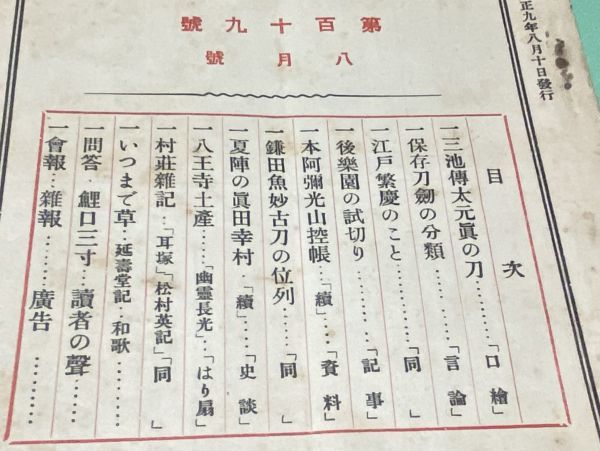 正九年八月十日發行
第百十九號
八月號
目次
一三池傳太元眞の刀………「口繪」
一保存刀劍の分類………「言論」
一江戸繁慶のこと………「同」
一後樂園の試切り………「記事」
一本阿彌光山控帳…「續」…「資料」
一鎌田魚妙古刀の位列……「同」
一夏陣の眞田幸村「續」…「史談」
一八王寺土產…「幽靈長光」「はり扇」
一村莊雜記…「耳塚」「松村英記」「同」
一いつまで草…延壽堂記…和歌………
一問答．鯉口三寸．讀者の聲……
一會報…雜報………廣告………